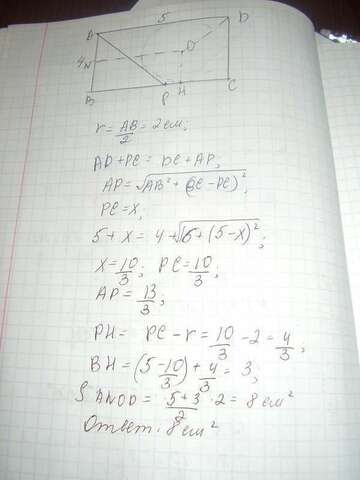 5
A
D
4
N
O
B
P
H
C
r = AB/2 = 2 см;
AD + PC = DC + AP;
AP = √(AB² + (BC − PC)²);
PC = x,
5 + x = 4 + √(16 + (5 − x)²);
x = 10/3; PC = 10/3;
AP = 13/3;
PH = PC − r = 10/3 − 2 = 4/3;
BH = (5 − 10/3) + 4/3 = 3;
S ANOD = (5 + 3)/2 · 2 = 8 см²
Ответ: 8 см²